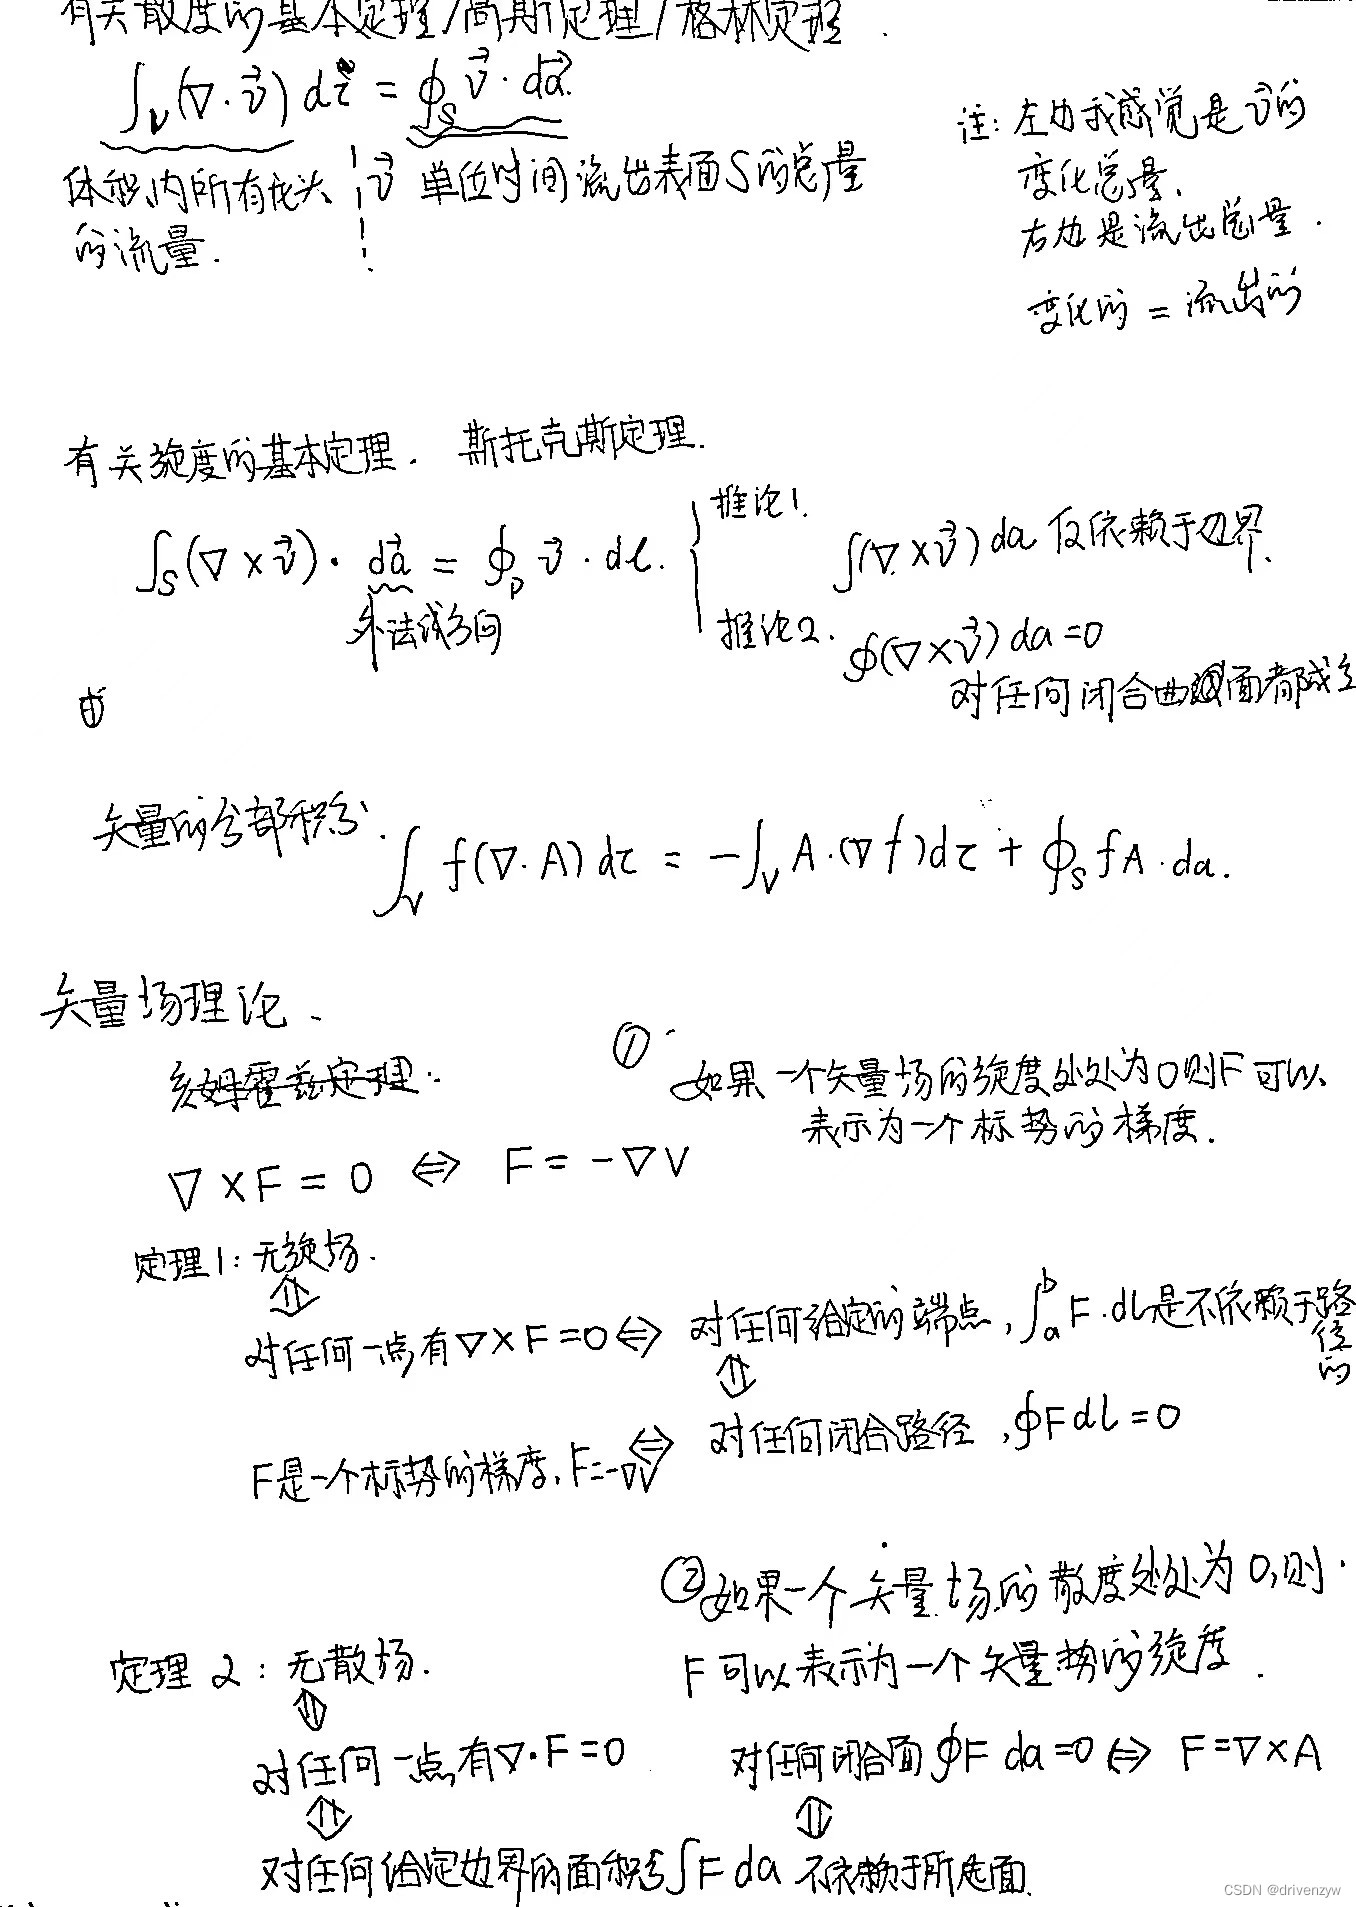 有关散度的基本定理/高斯定理/格林定理.
∫_V(∇·v⃗)dτ = ∮_S v⃗·da⃗.
体积内所有龙头的流量.
v⃗ 单位时间流出表面S的总量
注: 左边我感觉是v⃗的
变化总量.
右边是流出总量.
变化的 = 流出的
有关旋度的基本定理. 斯托克斯定理.
∫_S(∇×v⃗)·da⃗ = ∮_P v⃗·dl.
外法线方向
推论1.
∫(∇×v⃗)da 仅依赖于边界.
推论2.
∮(∇×v⃗)da=0
对任何闭合曲面都成立
矢量的分部积分.
∫_V f(∇·A)dτ = -∫_V A·(∇f)dτ + ∮_S fA·da.
矢量场理论.
亥姆霍兹定理:
∇×F = 0 ⇔ F = -∇V
①
如果一个矢量场的旋度处处为0则F可以
表示为一个标势的梯度.
定理1: 无旋场.
⇕
对任何一点有∇×F=0 ⇔ 对任何给定的端点, ∫_a^b F·dl是不依赖于路径的
⇕
F是一个标势的梯度, F=-∇V ⇔ 对任何闭合路径, ∮Fdl=0
②如果一个矢量场的散度处处为0,则
F可以表示为一个矢量势的旋度.
定理2: 无散场.
⇕
对任何一点,有∇·F=0
对任何闭合面∮F da=0 ⇔ F=∇×A
⇕ ⇕
对任何给定边界的面积分∫F da 不依赖于所选面.
CSDN @drivenzyw